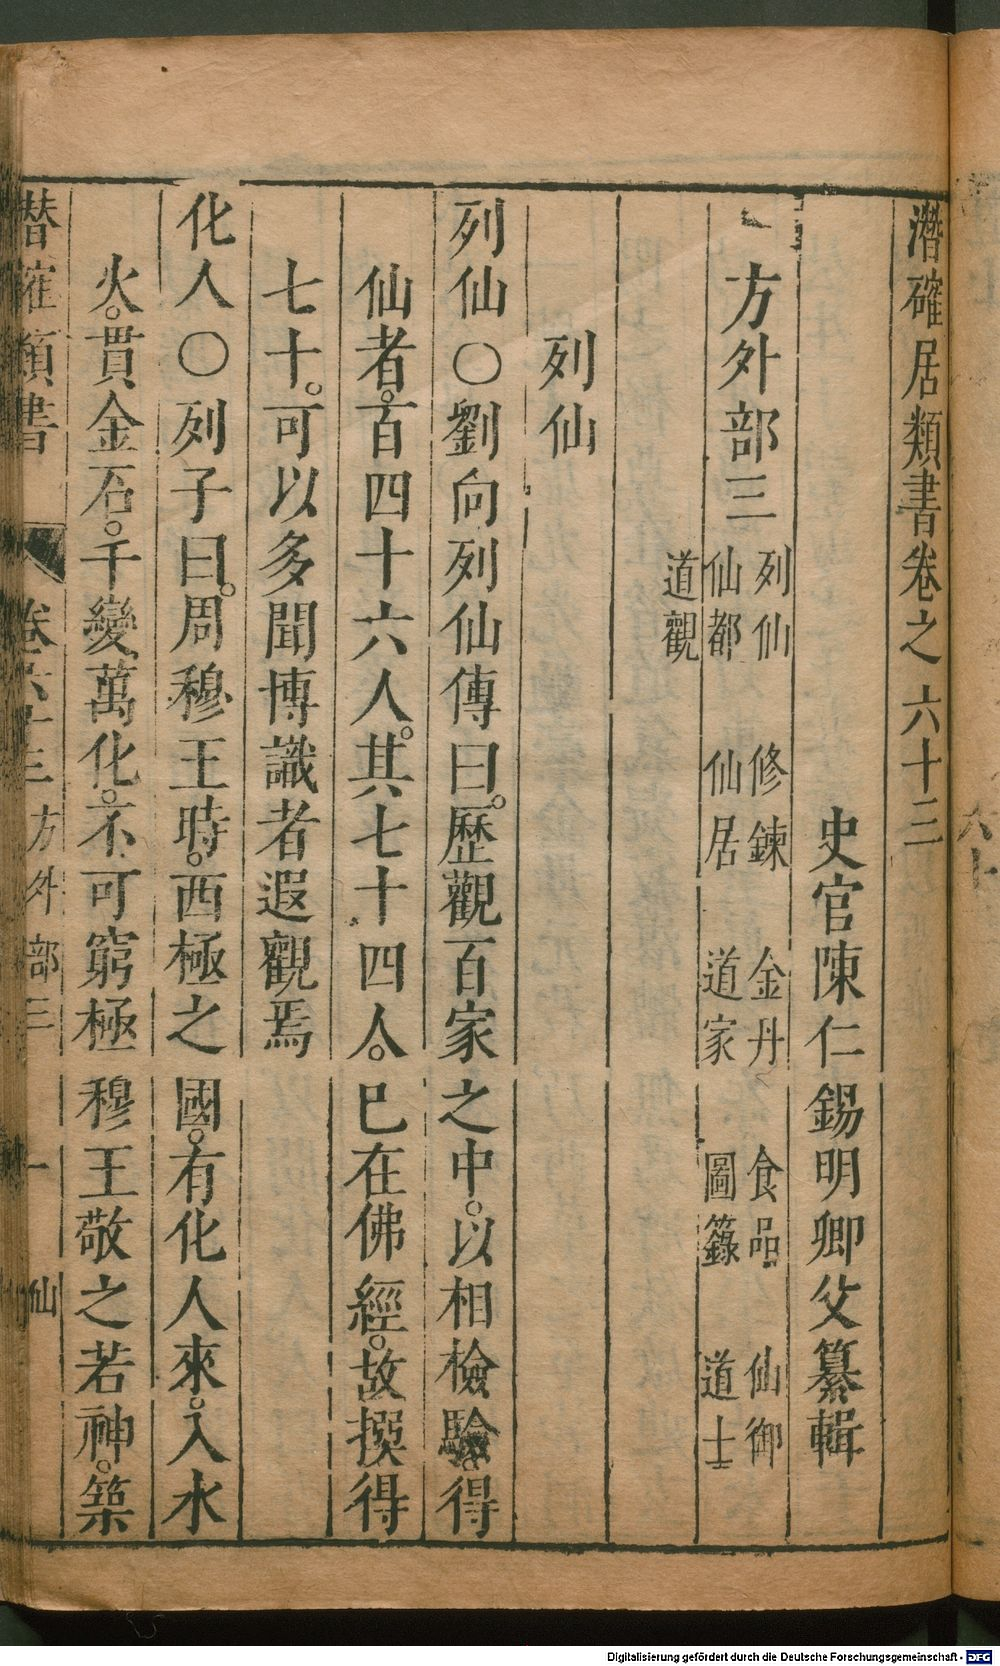 潛確居類書卷之六十三
史官陳仁錫明卿父纂輯
方外部三
列仙 修鍊 金丹 食品 仙御
仙都 仙居 道家 圖籙 道士
道觀
列仙
列仙〇劉向列仙傳曰。歷觀百家之中。以相檢驗。得
仙者。百四十六人。其七十四人。已在佛經。故撰得
七十。可以多聞博識者遐觀焉
化人〇列子曰。周穆王時。西極之國。有化人來。入水
火。貫金石。千變萬化。不可窮極穆王敬之若神。築
潛確類書 卷六十三 方外部三 一 仙
Digitalisierung gefördert durch die Deutsche Forschungsgemeinschaft - DFG